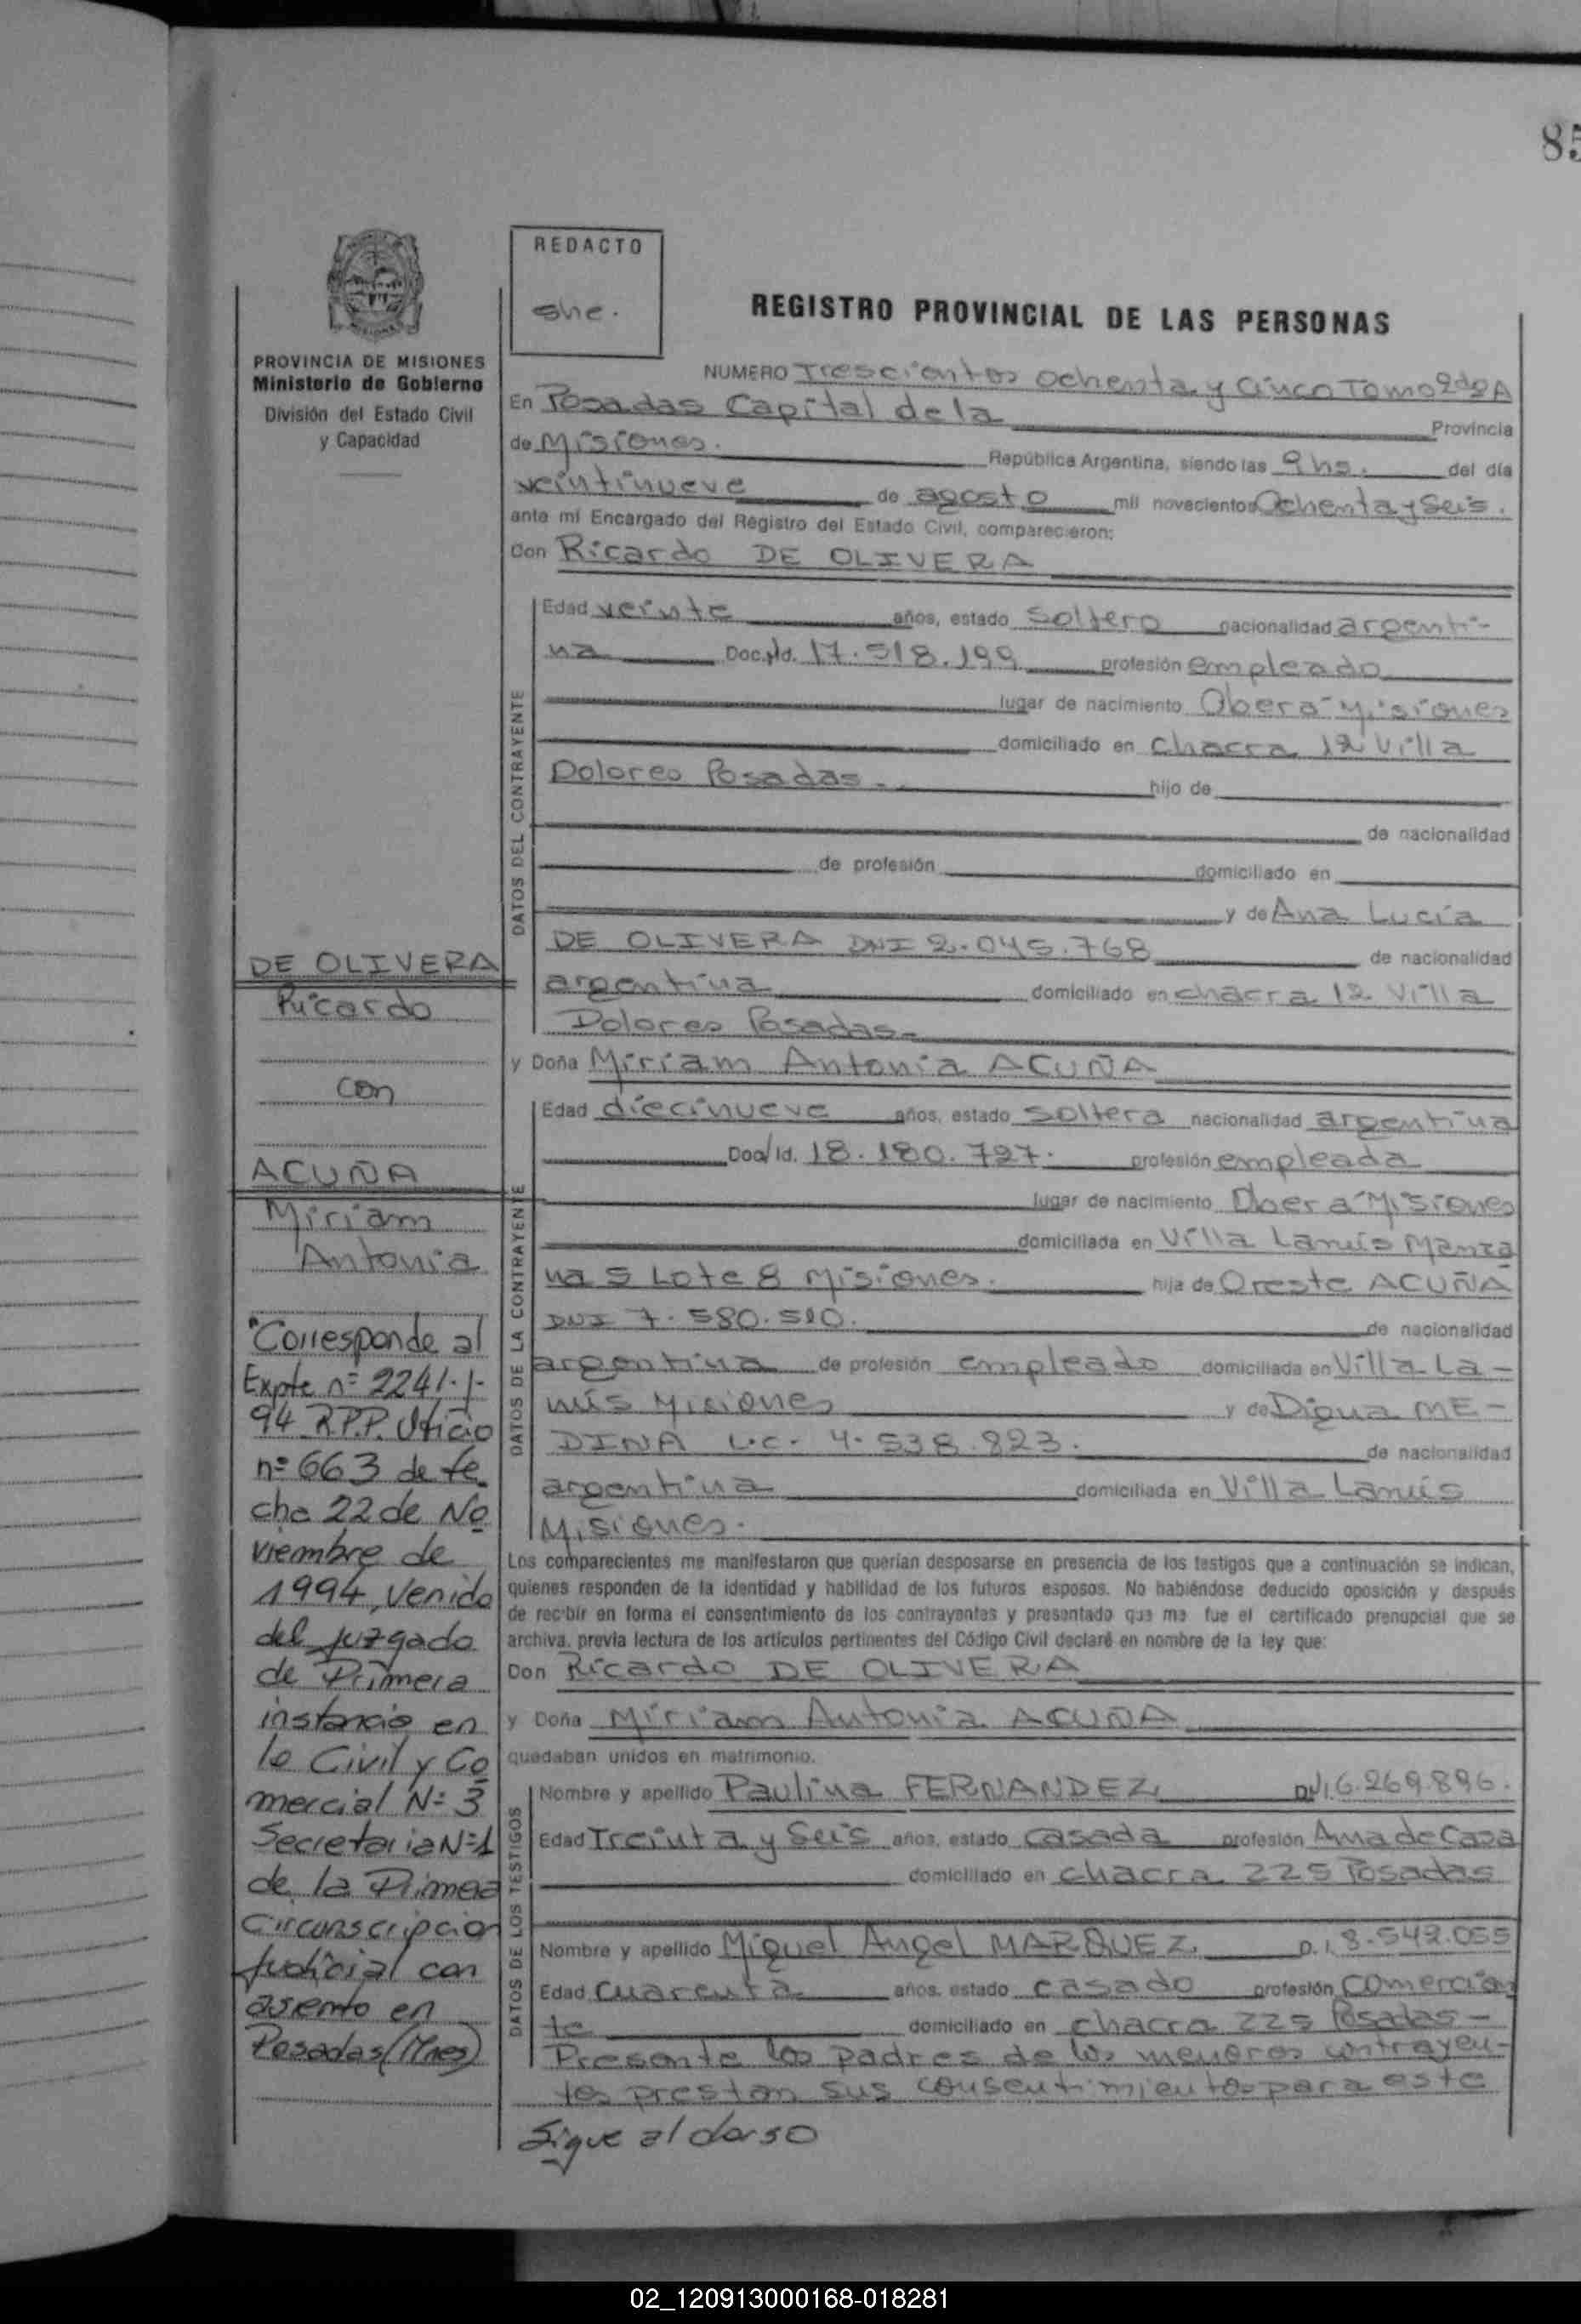 85
REDACTO
she.
PROVINCIA DE MISIONES
Ministerio de Gobierno
División del Estado Civil
y Capacidad
REGISTRO PROVINCIAL DE LAS PERSONAS
NUMERO Trescientos ochenta y cinco Tomo 2do A
En Posadas Capital de la Provincia
de Misiones. República Argentina, siendo las 9 hs. del día
veintinueve de agosto mil novecientos Ochenta y Seis.
ante mí Encargado del Registro del Estado Civil, comparecieron:
Don Ricardo DE OLIVERA
DATOS DEL CONTRAYENTE
Edad veinte años, estado Soltero nacionalidad argenti-
na Doc. Id. 17.518.199 profesión empleado
lugar de nacimiento Obera Misiones
domiciliado en Chacra 12 Villa
Dolores Posadas - hijo de
de nacionalidad
de profesión domiciliado en
y de Ana Lucía
DE OLIVERA DNI 2.045.768 de nacionalidad
argentina domiciliado en chacra 12 Villa
Dolores Posadas-
y Doña Miriam Antonia ACUÑA
DATOS DE LA CONTRAYENTE
Edad diecinueve años, estado Soltera nacionalidad argentina
Doc/Id. 18.180.727. profesión empleada
lugar de nacimiento Obera Misiones
domiciliada en Villa Lanús Manza
na 5 Lote 8 Misiones. hija de Oreste ACUÑA
DNI 7.580.510. de nacionalidad
argentina de profesión empleado domiciliada en Villa La-
nús Misiones y de Digna ME-
DINA L.C. 4.538.823. de nacionalidad
argentina domiciliada en Villa Lanús
Misiones.
Los comparecientes me manifestaron que querían desposarse en presencia de los testigos que a continuación se indican,
quienes responden de la identidad y habilidad de los futuros esposos. No habiéndose deducido oposición y después
de recibir en forma el consentimiento de los contrayentes y presentado que me fue el certificado prenupcial que se
archiva, previa lectura de los artículos pertinentes del Código Civil declaré en nombre de la ley que:
Don Ricardo DE OLIVERA
y Doña Miriam Antonia ACUÑA
quedaban unidos en matrimonio.
DATOS DE LOS TESTIGOS
Nombre y apellido Paulina FERNANDEZ DNI 6.269.896.
Edad Treinta y Seis años, estado casada profesión Ama de Casa
domiciliado en chacra 225 Posadas
Nombre y apellido Miguel Angel MARQUEZ D.I. 8.542.055
Edad Cuarenta años, estado casado profesión Comercian
te domiciliado en chacra 225 Posadas-
Presente los padres de los menores contrayen-
tes prestan sus consentimientos para este
Sigue al dorso
DE OLIVERA
Ricardo
con
ACUÑA
Miriam
Antonia
"Corresponde al
Expte nº 2241-J-
94 R.P.P. Oficio
nº 663 de fe
cha 22 de No
viembre de
1994, venido
del juzgado
de Primera
instancia en
lo Civil y Co
mercial Nº 3
Secretaria Nº 1
de la Primera
Circunscripcion
Judicial con
asiento en
Posadas (Mnes)
02_120913000168-018281